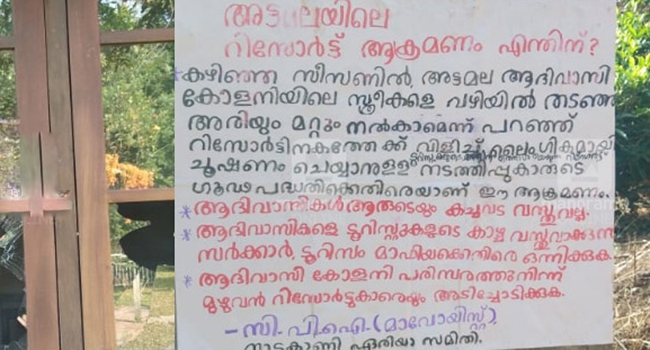 അട്ടമലയിലെ
റിസോർട്ട് ആക്രമണം എന്തിന്?
* കഴിഞ്ഞ സീസണിൽ, അട്ടമല ആദിവാസി
കോളനിയിലെ സ്ത്രീകളെ വഴിയിൽ തടഞ്ഞ
അരിയും മറ്റും നൽകാമെന്ന് പറഞ്ഞ്
റിസോർട്ടിനകത്തേക്ക് വിളിച്ച് ലൈംഗികമായി
ചൂഷണം ചെയ്യാനുള്ള നടത്തിപ്പുകാരുടെ
ഗൂഢ പദ്ധതിക്കെതിരെയാണ് ഈ ആക്രമണം.
* ആദിവാസികൾ ആരുടെയും കച്ചവട വസ്തുവല്ല.
* ആദിവാസികളെ ടൂറിസ്റ്റുകളുടെ കാഴ്ച വസ്തുവാക്കുന്ന
സർക്കാർ, ടൂറിസം മാഫിയക്കെതിരെ ഒന്നിക്കുക.
* ആദിവാസി കോളനി പരിസരത്തുനിന്ന്
മുഴുവൻ റിസോർട്ടുകാരെയും അടിച്ചോടിക്കുക.
- സി.പി.ഐ.(മാവോയിസ്റ്റ്).
നാടുകാണി ഏരിയാ സമിതി.